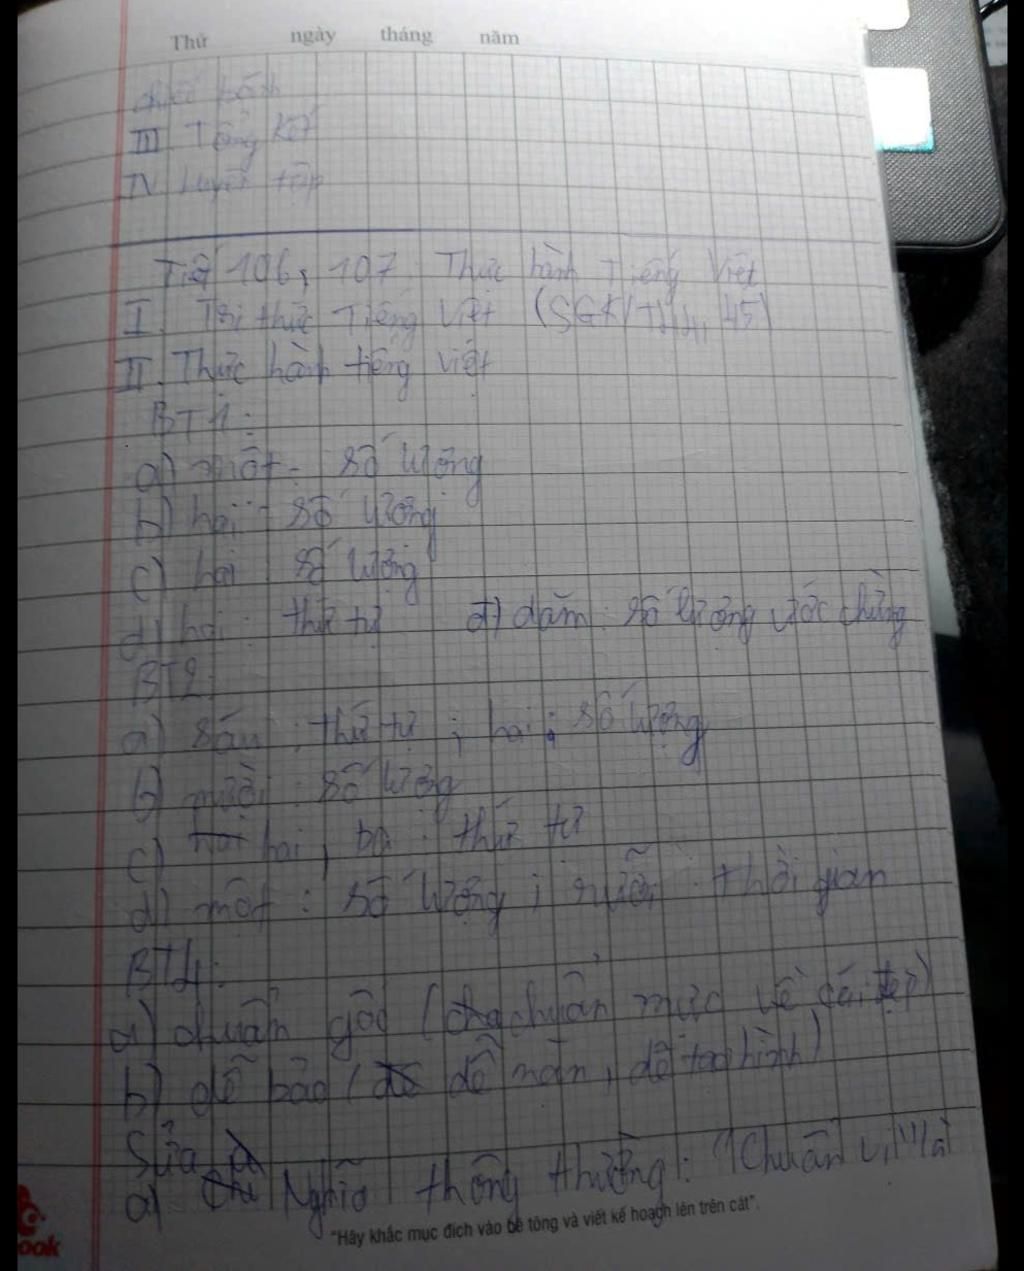 Thứ ngày tháng năm
III Tổng kết
IV Luyện tập
Tiết 106, 107: Thực hành Tiếng Việt
I. Tri thức Tiếng Việt (SGK/T44, 45)
II. Thực hành tiếng việt
BT1:
a) một - số lượng
b) hai - số lượng
c) hai : số lượng
d) hai : thứ tự đ) dăm : số lượng ước chừng
BT2:
a) sáu : thứ tự ; hai : số lượng
b) mười : số lượng
c) hai, ba : thứ tự
d) một : số lượng ; rưỡi : thời gian
BT4:
a) chuẩn gốc (chuẩn mực về cái đẹp)
b) dễ bảo (dễ nặn, dễ tạo hình)
Sửa
a) Nghĩa thông thường: "Chuẩn vị" là
"Hãy khắc mục đích vào bê tông và viết kế hoạch lên trên cát".
ook